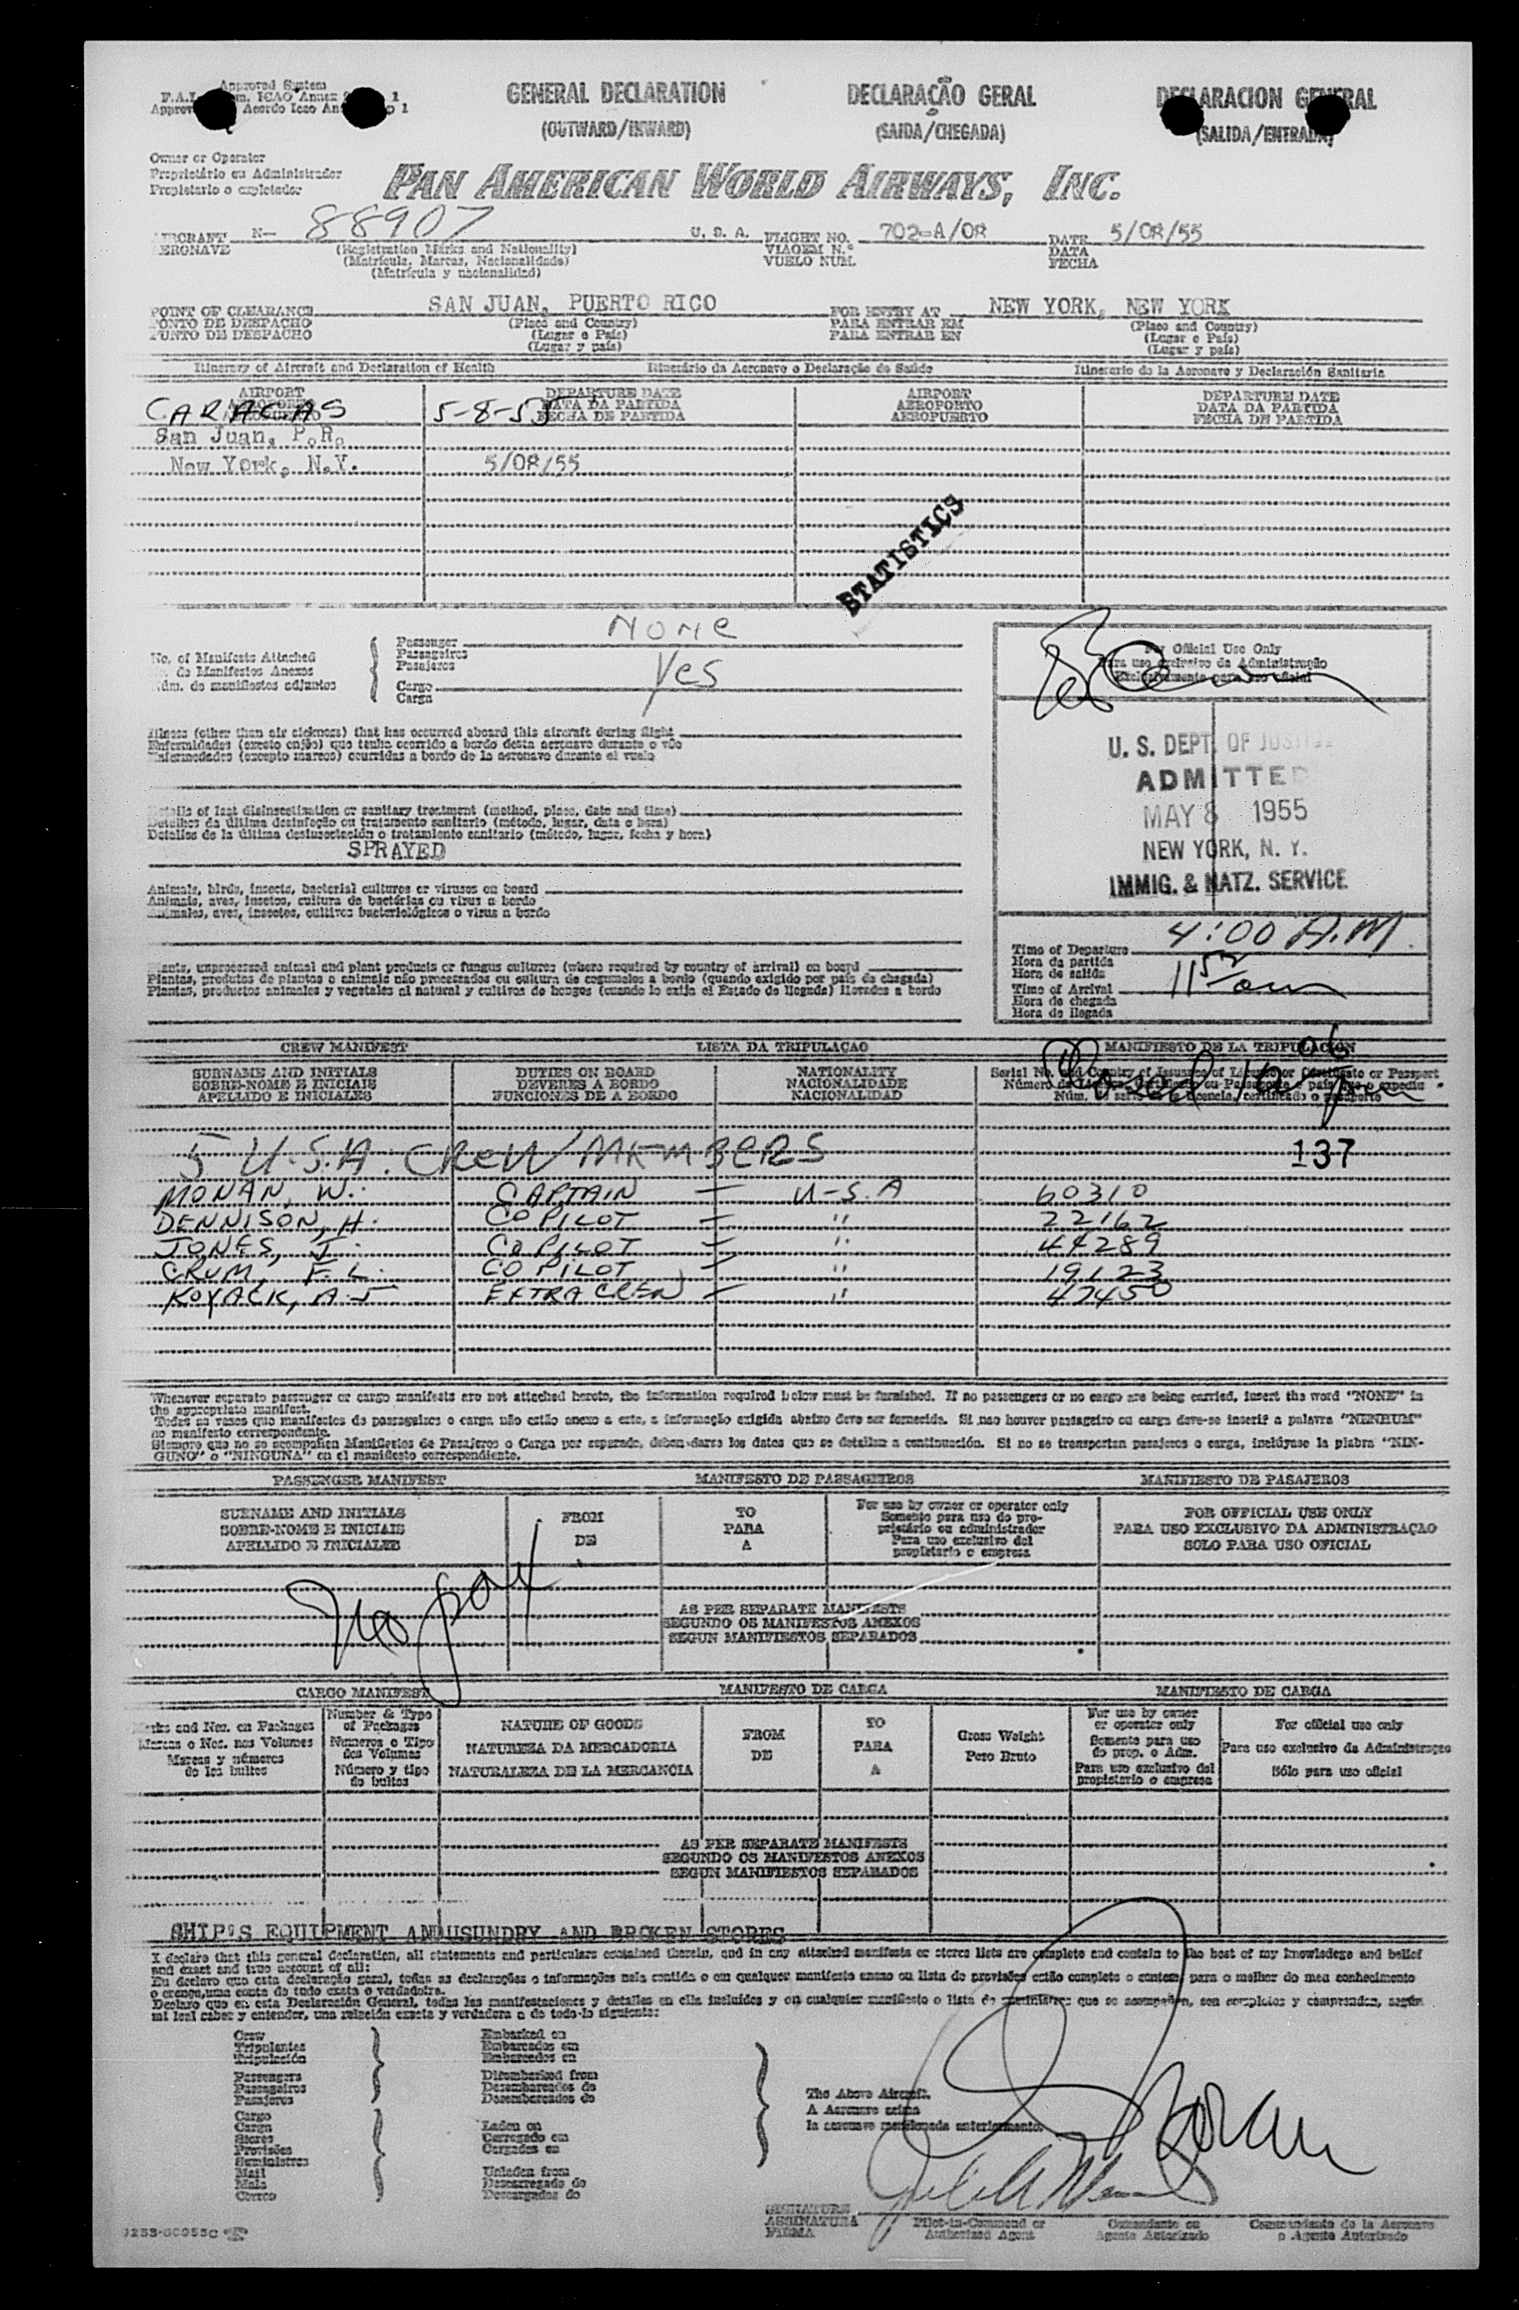 Approved System
GENERAL DECLARATION
(OUTWARD/INWARD)
DECLARAÇÃO GERAL
(SAIDA/CHEGADA)
DECLARACION GENERAL
(SALIDA/ENTRADA)
Owner or Operator
Proprietário ou Administrador
Propietario o expletador
PAN AMERICAN WORLD AIRWAYS, INC.
AIRCRAFT N- 88907 U. S. A. FLIGHT NO. 702-A/08 DATE 5/08/55
AERONAVE (Registration Marks and Nationality) VIAGEM N.º DATA
(Matricula, Marcas, Nacionalidade) VUELO NUM. FECHA
(Matrícula y nacionalidad)
POINT OF CLEARANCE SAN JUAN, PUERTO RICO FOR ENTRY AT NEW YORK, NEW YORK
PONTO DE DESPACHO (Place and Country) PARA ENTRAR EM (Place and Country)
PUNTO DE DESPACHO (Lugar e País) PARA ENTRAR EN (Lugar e País)
(Lugar y país) (Lugar y país)
Itinerary of Aircraft and Declaration of Health Itinerário da Aeronave e Declaração de Saúde Itinerario de la Aeronave y Declaración Sanitaria
AIRPORT DEPARTURE DATE AIRPORT DEPARTURE DATE
AEROPORTO DATA DA PARTIDA AEROPORTO DATA DA PARTIDA
AEROPUERTO FECHA DE PARTIDA AEROPUERTO FECHA DE PARTIDA
CARACAS 5-8-55
San Juan, P.R.
New York, N.Y. 5/08/55
STATISTICS
No. of Manifests Attached
No. de Manifestos Anexos
Núm. de manifiestos adjuntos
Passenger None
Passageiros
Pasajeros
Cargo Yes
Carga
For Official Use Only
Para uso exclusivo da Administração
Exclusivamente para uso oficial
U. S. DEPT. OF JUSTICE
ADMITTED
MAY 8 1955
NEW YORK, N. Y.
IMMIG. & NATZ. SERVICE
Illness (other than air sickness) that has occurred aboard this aircraft during flight
Enfermidades (exceto enjôo) que tenha ocorrido a bordo desta aeronave durante o vôo
Enfermedades (excepto mareos) ocurridas a bordo de la aeronave durante el vuelo
Details of last disinsectization or sanitary treatment (method, place, date and time)
Detalhes da última desinfeção ou tratamento sanitario (método, lugar, data e hora)
Detalles de la última desinsectación o tratamiento sanitario (método, lugar, fecha y hora)
SPRAYED
Animals, birds, insects, bacterial cultures or viruses on board
Animais, aves, insetos, cultura de bactérias ou virus a bordo
Animales, aves, insectos, cultivos bacteriológicos o virus a bordo
Plants, unprocessed animal and plant products or fungus cultures (where required by country of arrival) on board
Plantas, produtos de plantas e animais não processados ou cultura de cogumelos a bordo (quando exigido por país de chegada)
Plantas, productos animales y vegetales al natural y cultivos de hongos (cuando lo exija el Estado de llegada) llevados a bordo
Time of Departure 4:00 A.M.
Hora da partida
Hora de salida
Time of Arrival
Hora de chegada
Hora de llegada
CREW MANIFEST LISTA DA TRIPULAÇAO MANIFIESTO DE LA TRIPULACIÓN
SURNAME AND INITIALS DUTIES ON BOARD NATIONALITY
SOBRE-NOME E INICIAIS DEVERES A BORDO NACIONALIDADE
APELLIDO E INICIALES FUNCIONES DE A BORDO NACIONALIDAD
Serial No. and Country of Issuance of License or Certificate or Passport
137
5 U.S.A. CREW MEMBERS
MONAN, W. CAPTAIN — U-S.A 60310
DENNISON, H. CO PILOT — " 22162
JONES, J. CO PILOT — " 44289
CRUM, F. L. CO PILOT — " 19123
KOYACK, A J EXTRA CREW — " 47450
Whenever separate passenger or cargo manifests are not attached hereto, the information required below must be furnished. If no passengers or no cargo are being carried, insert the word "NONE" in
the appropriate manifest.
Todas as vezes que manifestos de passageiros o carga não estão anexo a este, a informação exigida abaixo deve ser fornecida. Si nao houver passageiro ou carga deve-se inserir a palavra "NENHUM"
no manifesto correspondente.
Siempre que no se acompañen Manifiestos de Pasajeros o Carga por separado, deben darse los datos que se detallan a continuación. Si no se transportan pasajeros o carga, inclúyase la plabra "NIN-
GUNO" o "NINGUNA" en el manifiesto correspondiente.
PASSENGER MANIFEST MANIFESTO DE PASSAGEIROS MANIFIESTO DE PASAJEROS
SURNAME AND INITIALS FROM TO For use by owner or operator only FOR OFFICIAL USE ONLY
SOBRE-NOME E INICIAIS DE PARA Somente para uso do pro- PARA USO EXCLUSIVO DA ADMINISTRAÇAO
APELLIDO E INICIALES A prietário ou administrador SOLO PARA USO OFICIAL
Para uso exclusivo del
propietario o empresa
No pax
AS PER SEPARATE MANIFESTS
SEGUNDO OS MANIFESTOS ANEXOS
SEGUN MANIFIESTOS SEPARADOS
CARGO MANIFEST MANIFESTO DE CARGA MANIFIESTO DE CARGA
Marks and Nos. on Packages Number & Type of Packages NATURE OF GOODS FROM TO Gross Weight For use by owner or operator only For official use only
Marcas e Nos. nos Volumes Numeros e Tipo dos Volumes NATUREZA DA MERCADORIA DE PARA Peso Bruto Somente para uso do prop. o Adm. Para uso exclusivo da Administraçao
Marcas y números de los bultos Número y tipo de bultos NATURALEZA DE LA MERCANCIA A Para uso exclusivo del propietario o empresa Sólo para uso oficial
AS PER SEPARATE MANIFESTS
SEGUNDO OS MANIFESTOS ANEXOS
SEGUN MANIFIESTOS SEPARADOS
SHIP'S EQUIPMENT AND SUNDRY AND BROKEN STORES
I declare that this general declaration, all statements and particulars contained therein, and in any attached manifests or stores lists are complete and contain to the best of my knowledege and belief
and exact and true account of all:
Eu declaro que esta declaração geral, todas as declarações e informações nela contida e em qualquer manifesto anexo ou lista de provisões estão completo e contem, para o melhor do meu conhecimento
e crença, uma conta de tudo exata e verdadeira.
Declaro que en esta Declaración General, todas las manifestaciones y detalles en ella incluídos y en cualquier manifiesto o lista de suministros que se acompañen, son completos y comprenden, según
mi leal saber y entender, una relación exacta y verdadera a de todo-lo siguiente:
Crew
Tripulantes
Tripulación
Passengers
Passageiros
Pasajeros
Cargo
Carga
Stores
Provisões
Suministros
Mail
Mala
Correo
Embarked on
Embarcados em
Embarcados en
Disembarked from
Desembarcados de
Desembarcados de
Laden on
Carregado em
Cargados en
Unladen from
Descarregado de
Descargados de
The Above Aircraft.
A Aeronave acima
la aeronave mencionada anteriormente.
SIGNATURE
ASSINATURA
FIRMA
Pilot-in-Command or
Authorized Agent
Comandante ou
Agente Autorizado
Commandante de la Aeronave
o Agente Autorizado